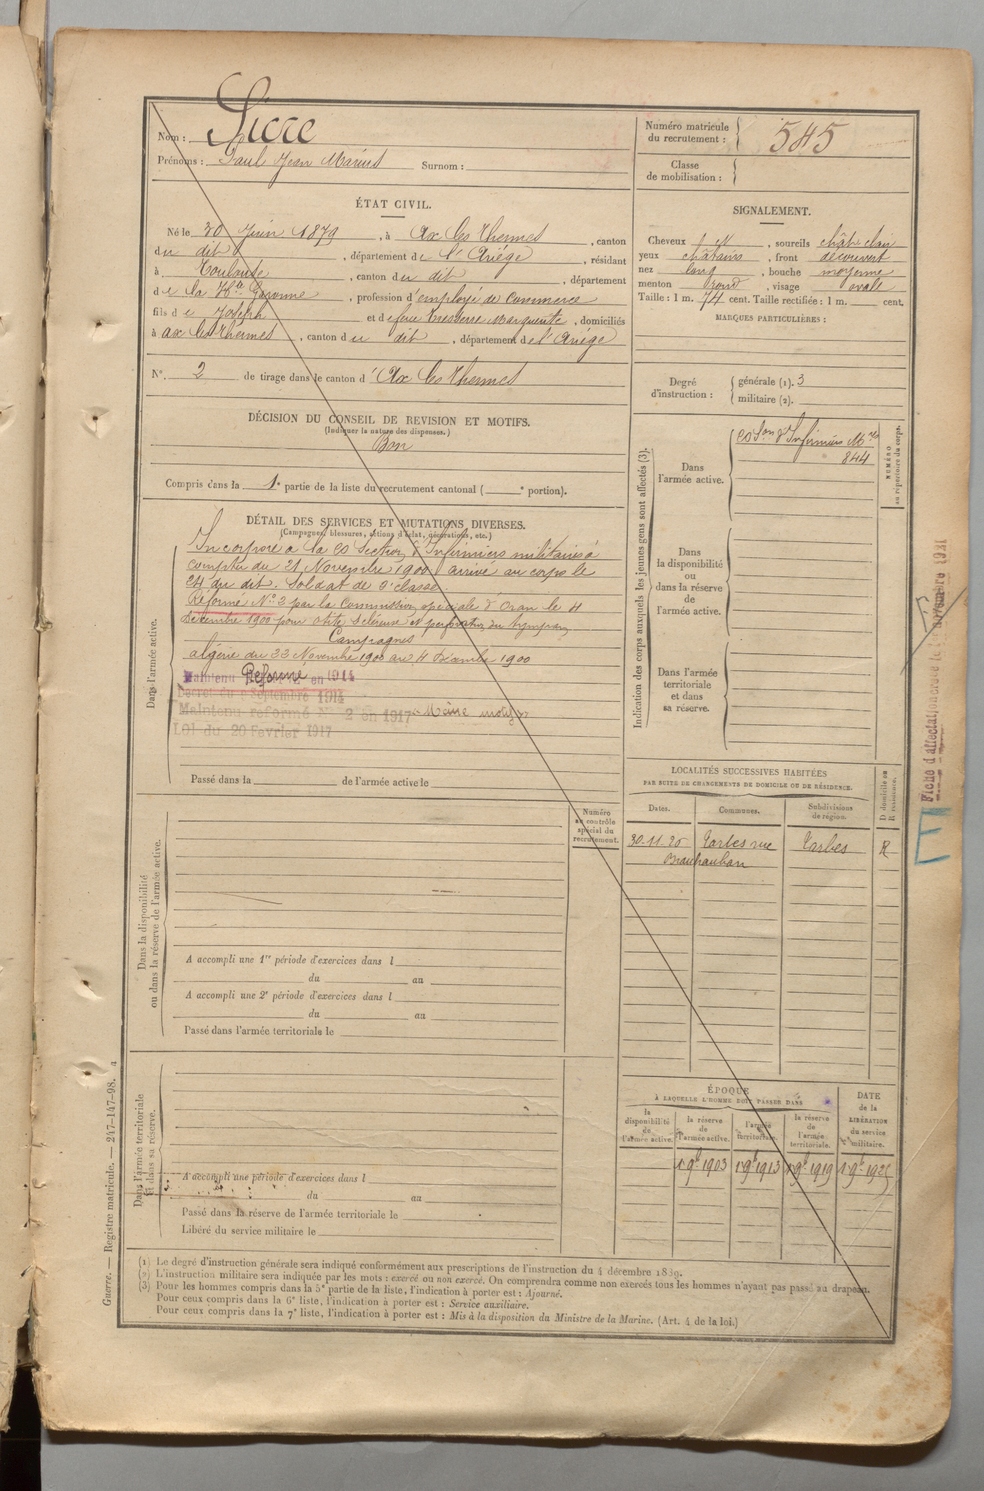 Nom : Sicre
Prénoms : Paul Jean Marius Surnom :
Numéro matricule du recrutement : 545
Classe de mobilisation :
ÉTAT CIVIL.
Né le 30 Juin 1879, à Ax les Thermes, canton
du dit, département de l'Ariège, résidant
à Toulouse, canton du dit, département
de la Hte Garonne, profession d'employé de Commerce
fils de Joseph et de feue Marguerite, domiciliés
à ax les Thermes, canton du dit, département de l'Ariège
N°. 2 de tirage dans le canton d'Ax les Thermes
SIGNALEMENT.
Cheveux, sourcils chât. clair
yeux châtains, front découvert
nez long, bouche moyenne
menton rond, visage ovale
Taille : 1 m. 74 cent. Taille rectifiée : 1 m. cent.
MARQUES PARTICULIÈRES :
Degré d'instruction : générale (1). 3
militaire (2).
DÉCISION DU CONSEIL DE REVISION ET MOTIFS.
(Indiquer la nature des dispenses.)
Bon
Compris dans la 1e partie de la liste du recrutement cantonal ( e portion).
DÉTAIL DES SERVICES ET MUTATIONS DIVERSES.
(Campagnes, blessures, actions d'éclat, décorations, etc.)
Dans l'armée active.
Incorporé à la Section d'Infirmiers militaires à
compter du 21 Novembre 1900 arrivé au corps le
24 du dit. Soldat de 2e classe
Réformé N° 2 par la Commission spéciale d'Oran le 4
décembre 1900 pour otite et perforation du tympan
Campagnes
algérie du 23 Novembre 1900 au 4 Décembre 1900
Maintenu Réformé en 1914
Décret du 9 Septembre 1914
Maintenu réformé N° 2 en 1917 Même motif
LOI du 20 Février 1917
Passé dans la de l'armée active le
Indication des corps auxquels les jeunes gens sont affectés (3).
NUMÉRO au répertoire du corps.
Dans l'armée active.
Son d'Infirmiers Mres
844
Dans la disponibilité ou dans la réserve de l'armée active.
Dans l'armée territoriale et dans sa réserve.
Fiche d'affectation créée le novembre 1921
LOCALITÉS SUCCESSIVES HABITÉES
PAR SUITE DE CHANGEMENTS DE DOMICILE OU DE RÉSIDENCE.
Dates. Communes. Subdivisions de région. D domicile ou R résidence.
30.11.20 Tarbes rue Tarbes R
Numéro au contrôle spécial du recrutement.
Dans la disponibilité ou dans la réserve de l'armée active.
A accompli une 1re période d'exercices dans l
du au
A accompli une 2e période d'exercices dans l
du au
Passé dans l'armée territoriale le
Dans l'armée territoriale et dans sa réserve.
A accompli une période d'exercices dans l
du au
Passé dans la réserve de l'armée territoriale le
Libéré du service militaire le
ÉPOQUE
À LAQUELLE L'HOMME DOIT PASSER DANS
la disponibilité de l'armée active. la réserve de l'armée active. l'armée territoriale. la réserve de l'armée territoriale.
DATE de la LIBÉRATION du service militaire.
1 9bre 1903 1 9bre 1913 1 9bre 1919 1 9bre 1925
(1) Le degré d'instruction générale sera indiqué conformément aux prescriptions de l'instruction du 4 décembre 1889.
(2) L'instruction militaire sera indiquée par les mots : exercé ou non exercé. On comprendra comme non exercés tous les hommes n'ayant pas passé au drapeau.
(3) Pour les hommes compris dans la 5e partie de la liste, l'indication à porter est : Ajourné.
Pour ceux compris dans la 6e liste, l'indication à porter est : Service auxiliaire.
Pour ceux compris dans la 7e liste, l'indication à porter est : Mis à la disposition du Ministre de la Marine. (Art. 4 de la loi.)
Guerre. — Registre matricule. — 247-147-98.